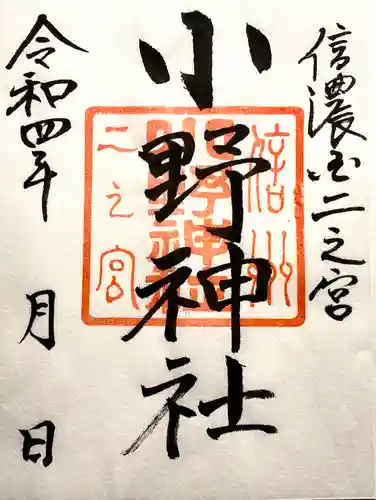 信濃国二之宮
小野神社
信州
小野神社
二之宮
令和四年
月
日